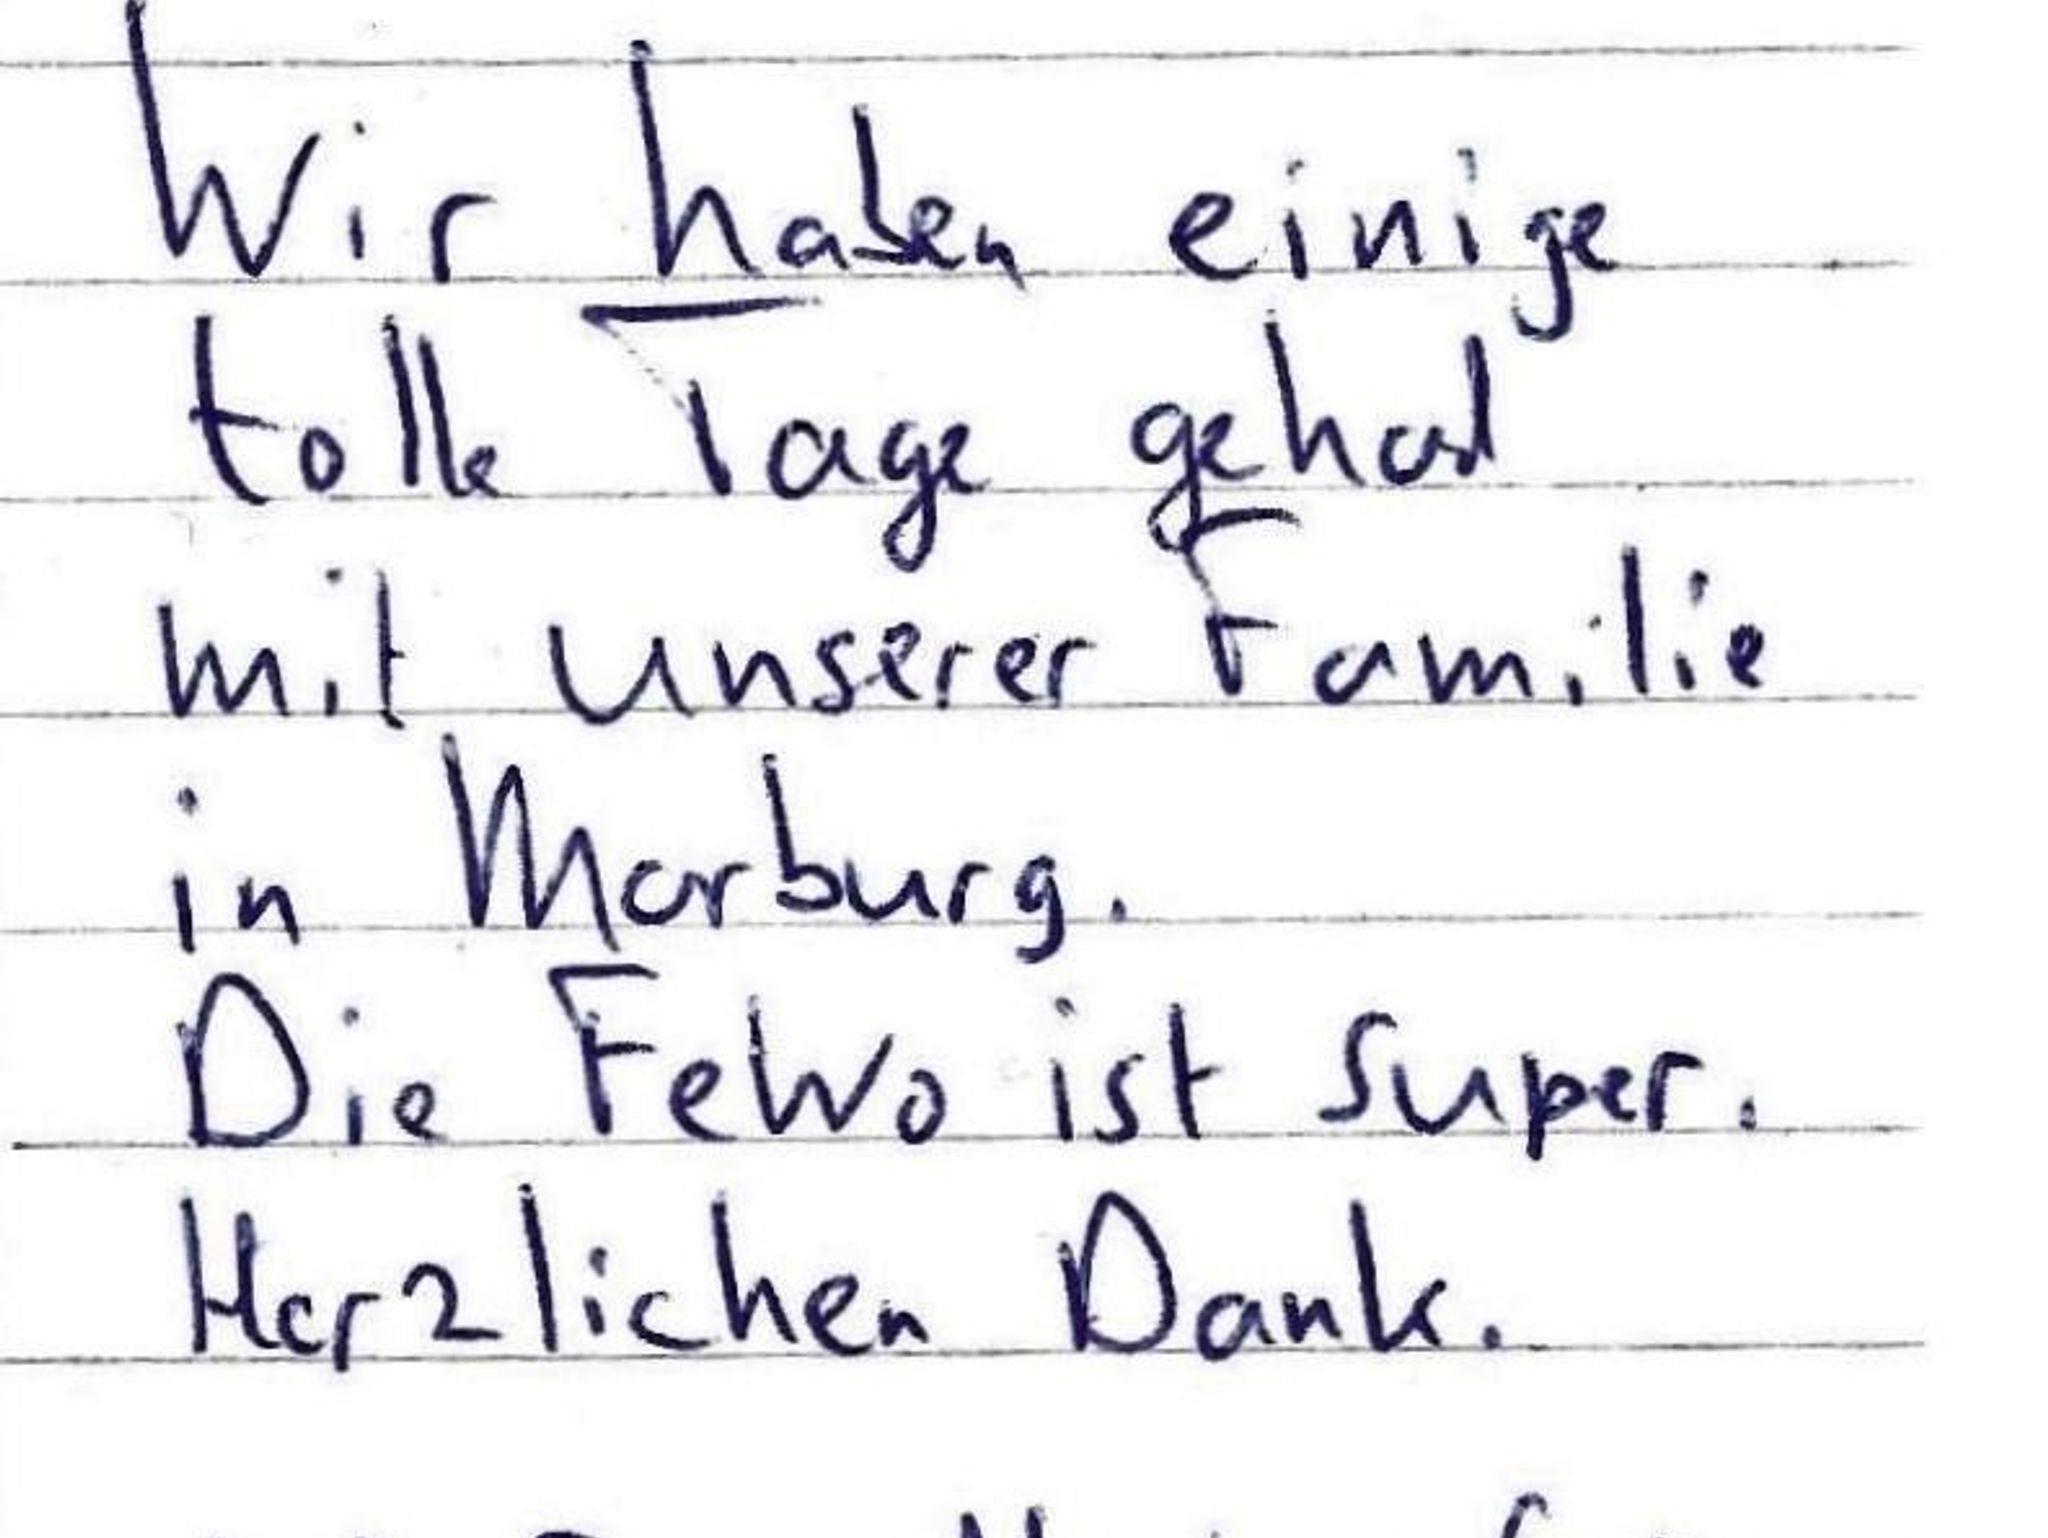 Wir haben einige
tolle Tage gehabt
mit unserer Familie
in Marburg.
Die FeWo ist super.
Herzlichen Dank.